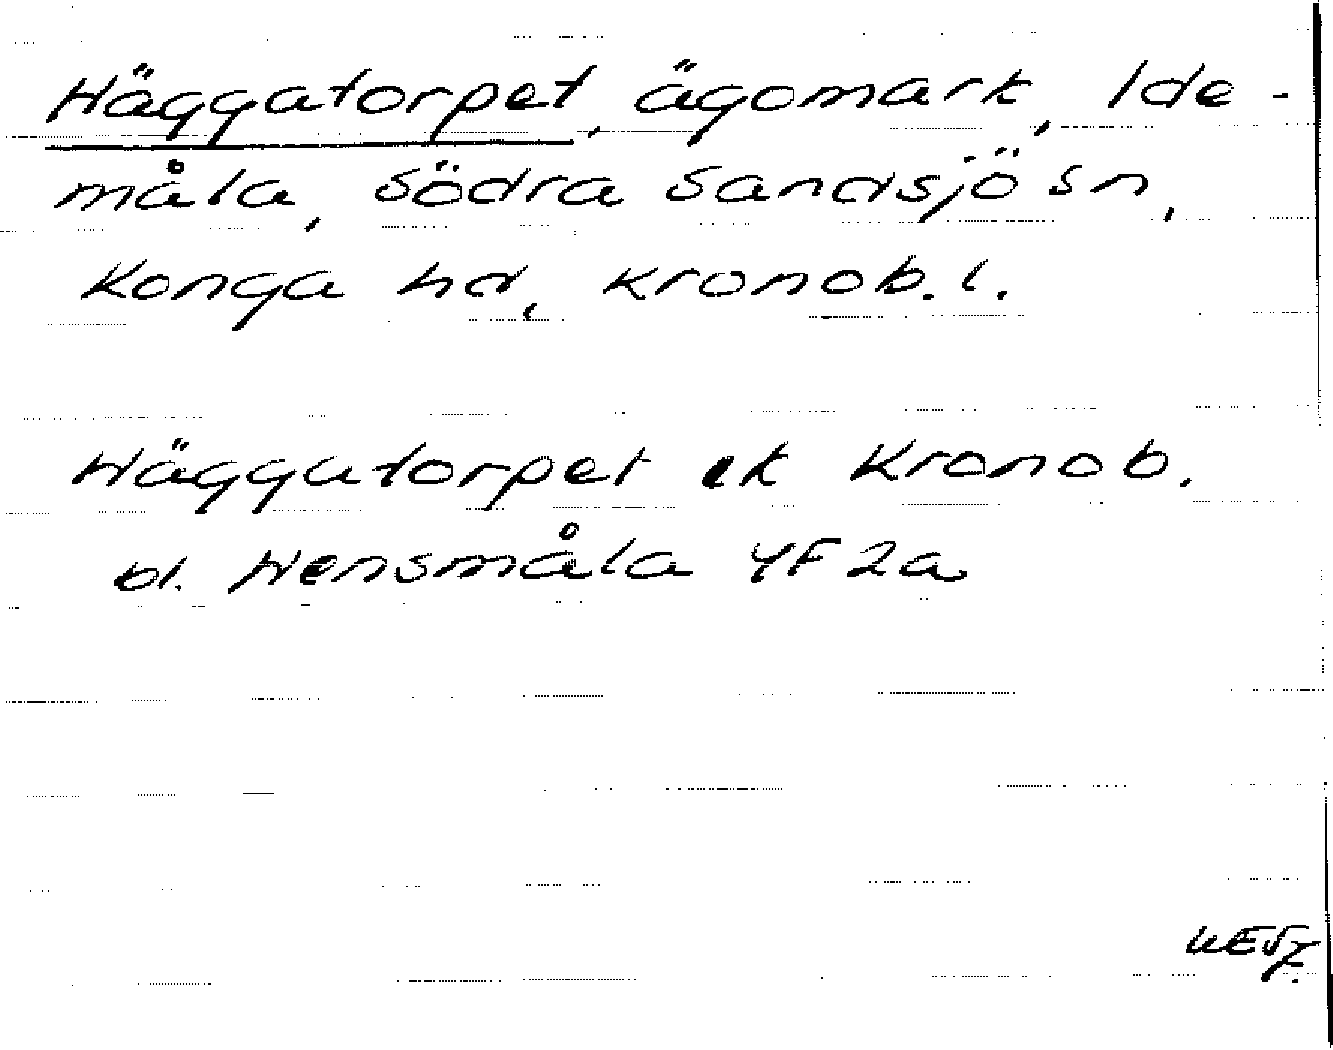 Häggatorpet, ägomark, Ide-
måla, Södra Sandsjö sn,
Konga hd, Kronob. l.
Häggatorpet ek Kronob.
bl. Hensmåla 4F 2a